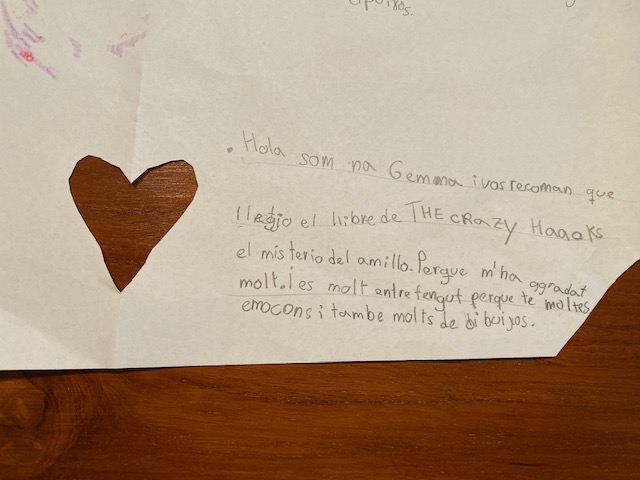 dibuixos.
• Hola som na Gemma i vos recoman que
llegio el llibre de THE CRAZY Haaaks
el misterio del amillo. Perque m'ha aggradat
molt. i es molt entretengut perque te moltes
emocons i tambe molts de dibuijos.